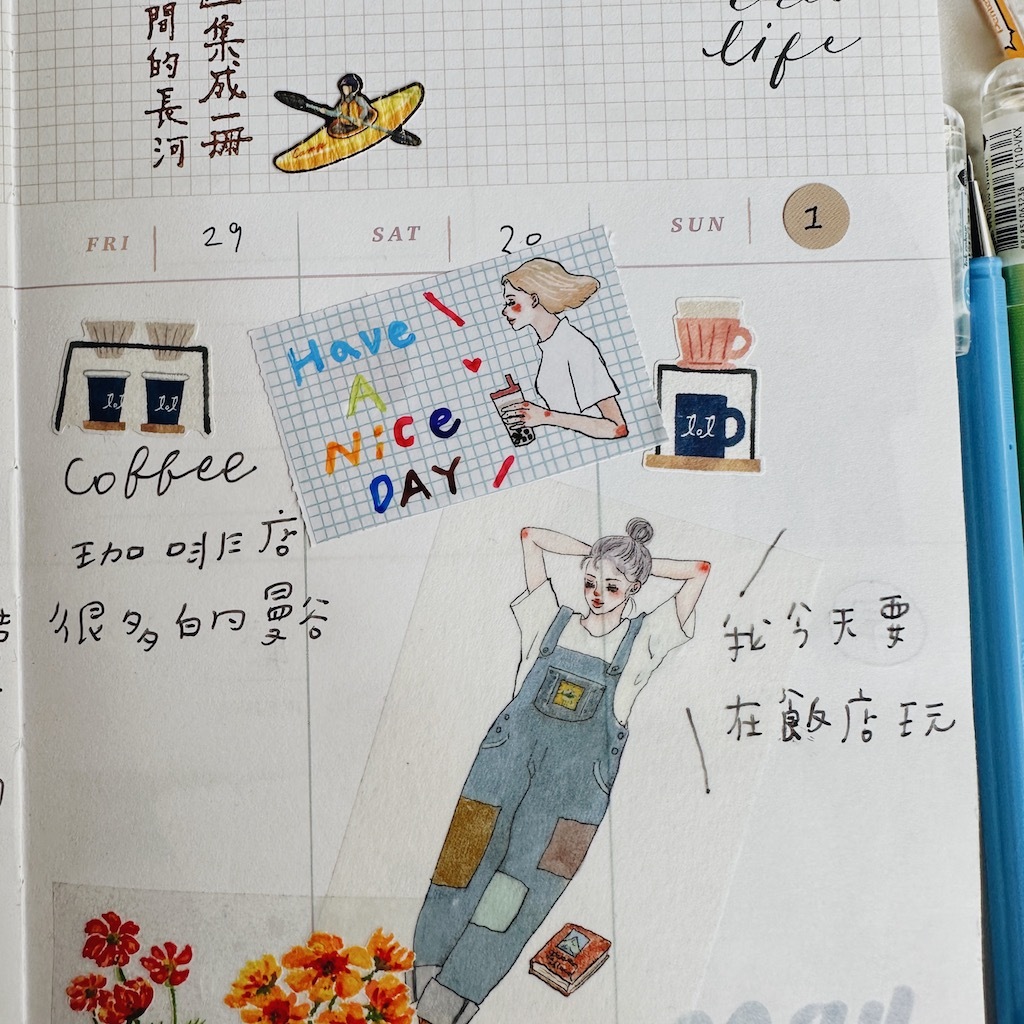 集成一冊
間的長河
life
FRI 29
SAT 20
SUN 1
Have
A
Nice
DAY
lol lol
lol
Coffee
咖啡店
很多的曼谷
我今天要
在飯店玩
May
K110-VKX